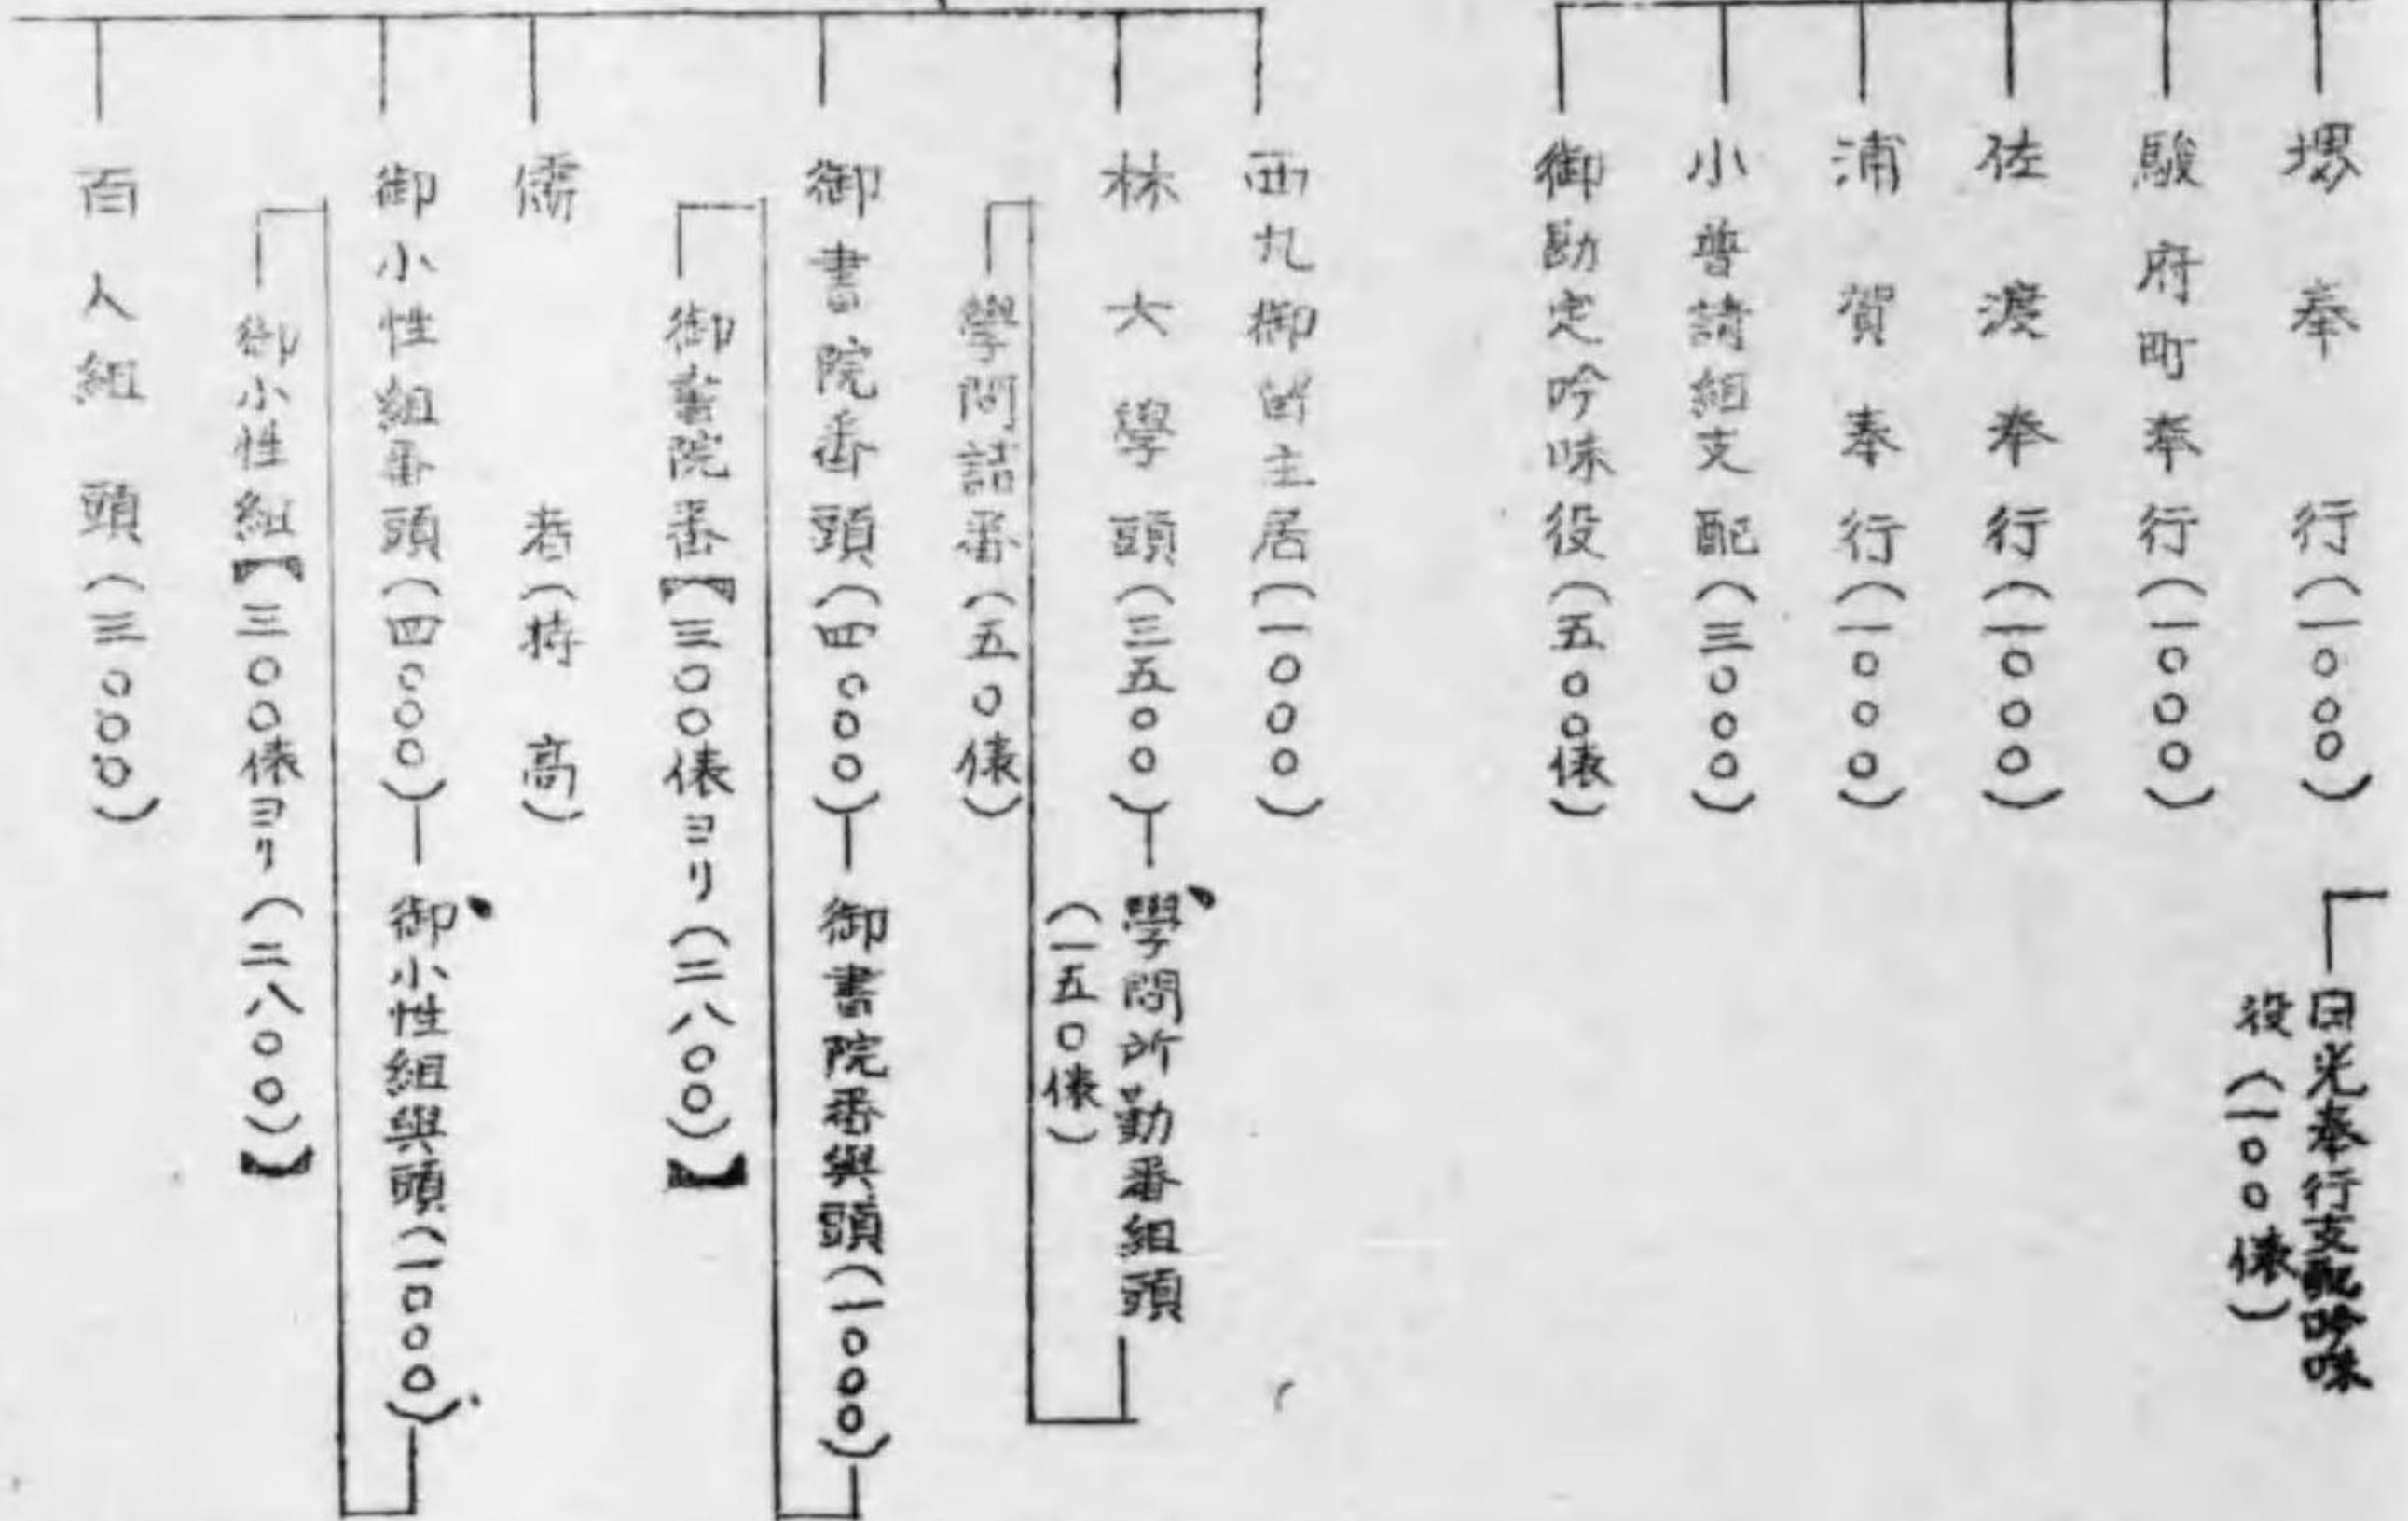 堺奉行(一〇〇〇)
日光奉行支配吟味
役(一〇〇俵)
駿府町奉行(一〇〇〇)
佐渡奉行(一〇〇〇)
浦賀奉行(一〇〇〇)
小普請組支配(三〇〇〇)
御勘定吟味役(五〇〇俵)
西丸御留主居(一〇〇〇)
林大學頭(三五〇〇)
學問所勤番組頭
(一五〇俵)
學問詰番(五〇俵)
御書院番頭(四〇〇〇)
御書院番與頭(一〇〇〇)
御書院番【三〇〇俵ヨリ(二八〇〇)】
儒者(持高)
御小性組番頭(四〇〇〇)
御小性組與頭(一〇〇〇)
御小性組【三〇〇俵ヨリ(二八〇〇)】
百人組頭(三〇〇〇)